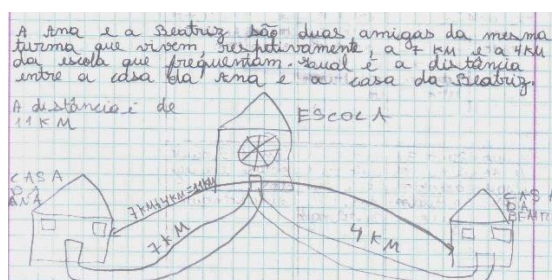 A Ana e a Beatriz são duas amigas da mesma
turma que vivem, respetivamente, a 7 KM e a 4KM
da escola que frequentam. Qual é a distância
entre a casa da Ana e a casa da Beatriz.
A distância é de
11 KM
ESCOLA
CASA
DA
ANA
7KM+4KM=11KM
7 KM
4 KM
CASA
DA